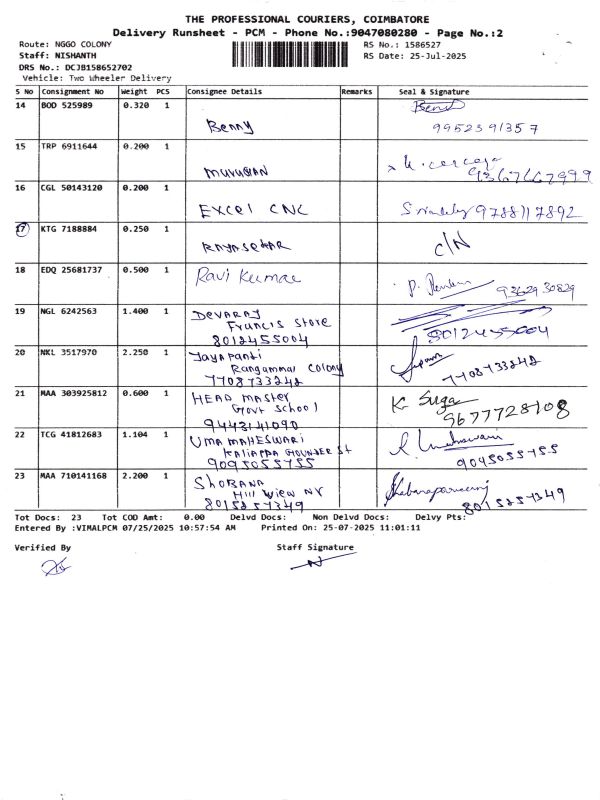 THE PROFESSIONAL COURIERS, COIMBATORE
Delivery Runsheet - PCM - Phone No.:9047080280 - Page No.:2
Route: NGGO COLONY
RS No.: 1586527
Staff: NISHANTH
RS Date: 25-Jul-2025
DRS No.: DCJB158652702
Vehicle: Two Wheeler Delivery
S No Consignment No Weight PCS Consignee Details Remarks Seal & Signature
14 BOD 525989 0.320 1 Benny
9952391357
15 TRP 6911644 0.200 1 MURUGAN
16 CGL 50143120 0.200 1 EXCEL CNC 9788117892
17 KTG 7188884 0.250 1 C/N
18 EDQ 25681737 0.500 1 Ravi Kumar 9362930829
19 NGL 6242563 1.400 1 DEVARAJ
Francis Store
8012455004 8012455004
20 NKL 3517970 2.250 1 Jayapanti
Rangammal Colony
7708733242 7708733242
21 MAA 303925812 0.600 1 HEAD Master K. Suga
Govt School
9443141090 9677728108
22 TCG 41812683 1.104 1 UMA MAHESWARI
KALIAPPA GOUNDER St
9095055755 9095055755
23 MAA 710141168 2.200 1 SHOBANA
Hill View NR
8015257349 8015257349
Tot Docs: 23 Tot COD Amt: 0.00 Delvd Docs: Non Delvd Docs: Delvy Pts:
Entered By :VIMALPCM 07/25/2025 10:57:54 AM Printed On: 25-07-2025 11:01:11
Verified By Staff Signature